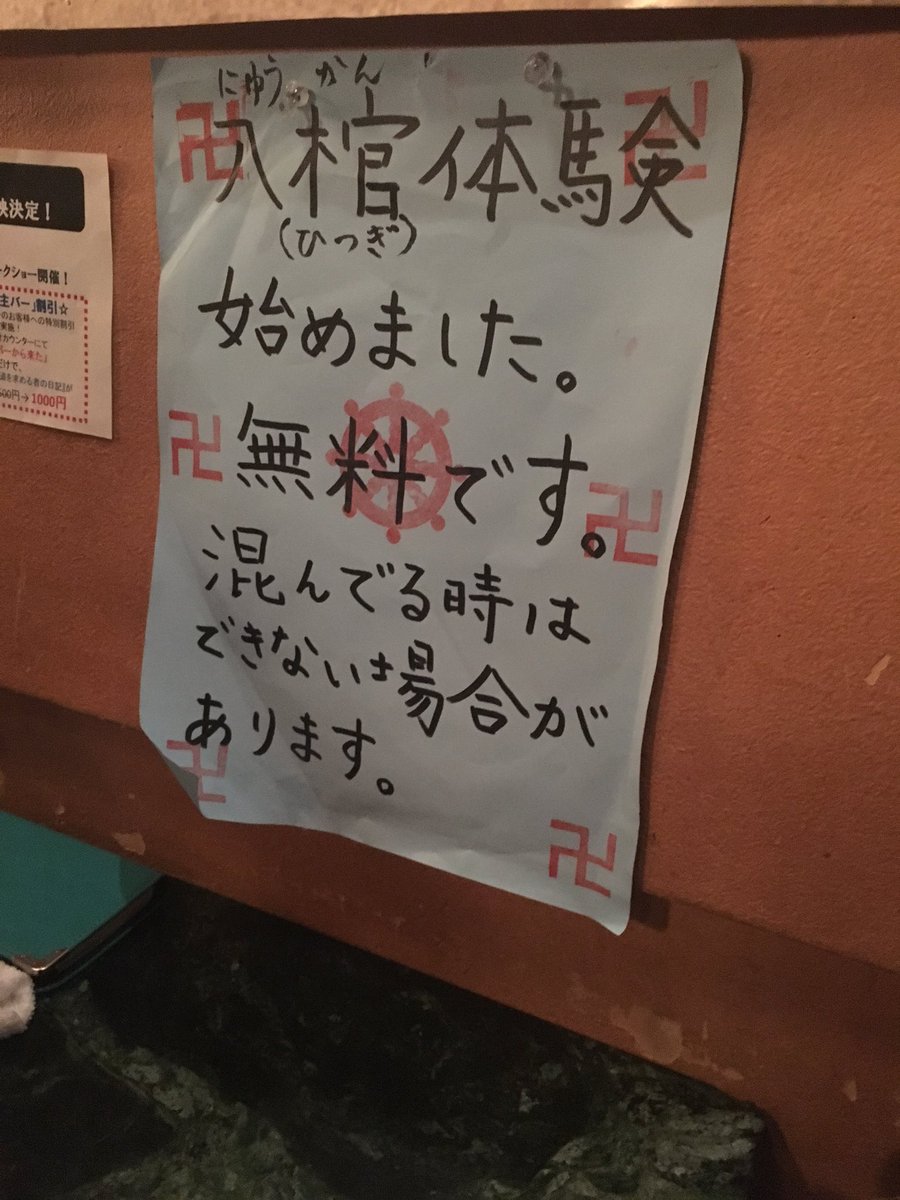 映決定！
ークショー開催！
主バー」割引☆
のお客様への特別割引
実施！
カウンターにて
バーから来た」
だけで、
道を求める者の日記』が
500円→1000円
にゅう かん
入棺体験
(ひつぎ)
始めました。
無料です。
混んでる時は
できない場合が
あります。